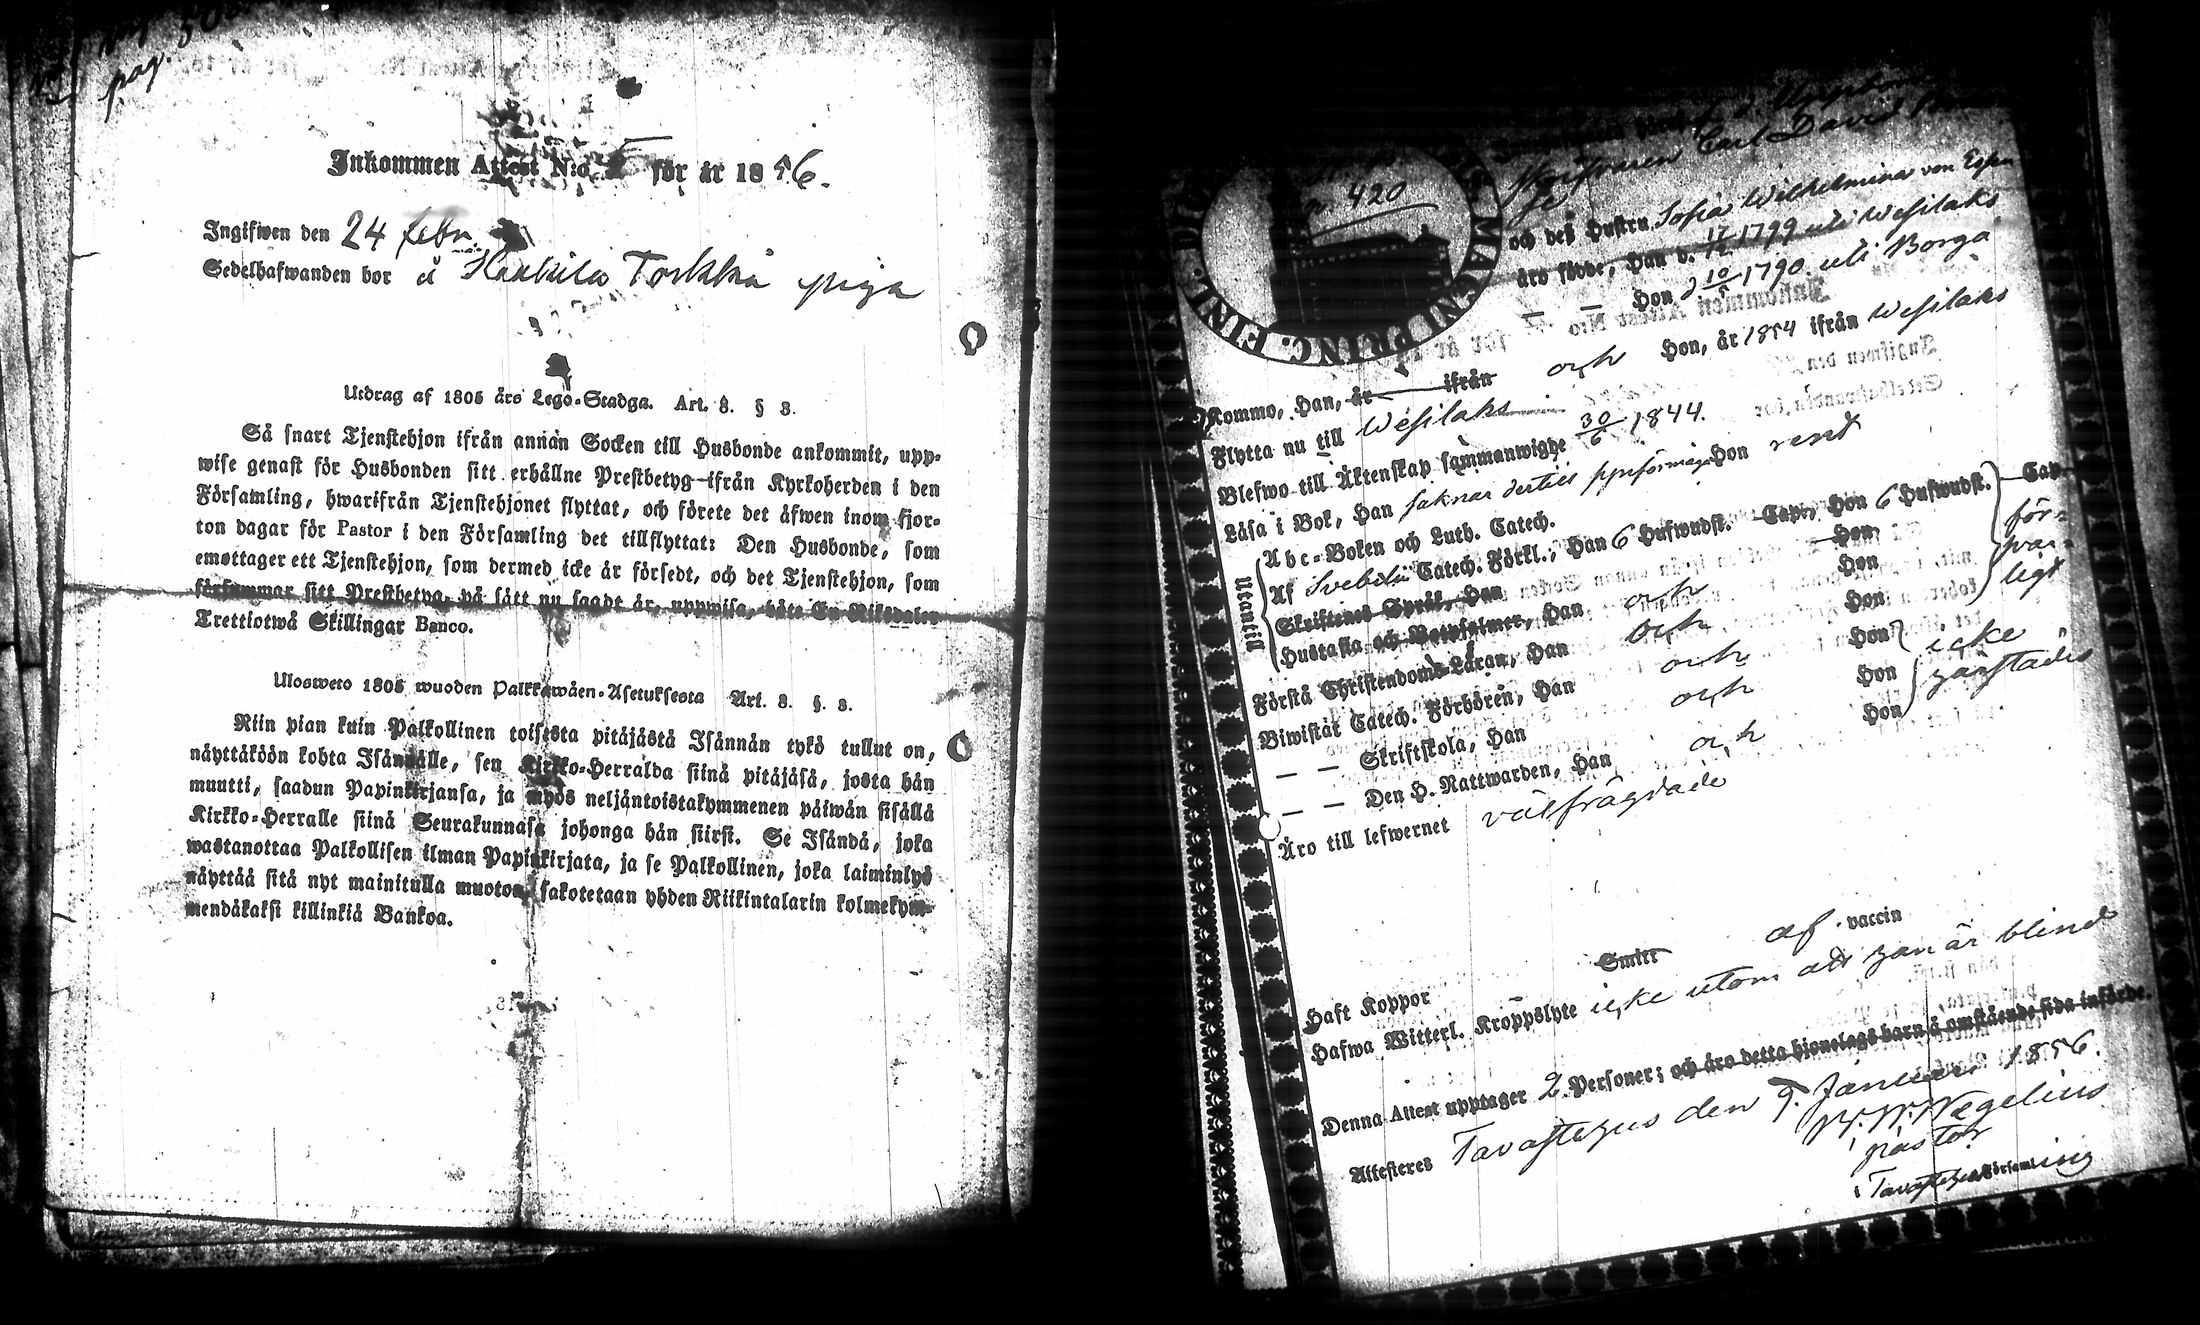 pag. 50
Inkommen Attest N:o 5 för år 1856.
Ingifwen den 24 febr.
Sedelhafwanden bor å Haukila Torkka piga
Utdrag af 1805 års Lego-Stadga. Art. 8. § 3.
Så snart Tjenstehjon ifrån annan Socken till Husbonde ankommit, upp-
wise genast för Husbonden sitt erhållne Prestbetyg ifrån Kyrkoherden i den
Församling, hwarifrån Tjenstehjonet flyttat, och förete det äfwen inom fjor-
ton dagar för Pastor i den Församling det tillflyttat: Den Husbonde, som
emottager ett Tjenstehjon, som dermed icke är försedt, och det Tjenstehjon, som
försummar sitt Prestbetyg, på sätt nu sagdt är, uppwisa, böte En Riksdaler
Trettiotwå Skillingar Banco.
Ulosweto 1805 wuoden Palkkawäen-Asetuksesta Art. 8. §. 3.
Niin pian kuin Palkollinen toisesta pitäjästä Isännän tykö tullut on,
näyttäköön kohta Isännälle, sen Kirkko-Herralda siinä pitäjäsä, josta hän
muutti, saadun Papinkirjansa, ja myös neljäntoistakymmenen päiwän sisällä
Kirkko-Herralle siinä Seurakunnasa johonga hän siirsi. Se Isändä, joka
wastanottaa Palkollisen ilman Papinkirjata, ja se Palkollinen, joka laiminlyö
näyttää sitä nyt mainitulla muoton, sakotetaan yhden Riikintalarin kolmekym-
mendäkaksi killinkiä Bankoa.
MAGNI PRINC. FINL.
p. 420
Skrifvaren Carl David
och deß Hustru Sofia Wilhelmina von Espen
äro födde, Han d. 17/12 1799 uti Wesilaks
— — Hon d 10/5 1790 uti Borgå
Kommo, Han, år — ifrån och Hon, år 1854 ifrån Wesilaks
Flytta nu till Wesilaks
Blefwo till Äktenskap sammanwigde 30/6 1844.
Läsa i Bok, Han saknar dertill synförmåga Hon rent
Utantill
Abc-Boken och Luth. Catech.
Af Svebilii Catech. Förkl., Han 6 Hufwudst. Cap., Hon 6 Hufwudst. Cap.
Skriftenes Språk, Han Hon
Hustafla och Botpsalmer, Han och Hon
försvarligt
Första Christendoms-Läran, Han och Hon
Biwistat Catech. Förhören, Han och Hon
— — Skriftskola, Han och Hon
— — Den H. Nattwarden, Han och Hon
icke
Äro till lefwernet välfrägdade
Haft Koppor Smitt af vaccin
Hafwa Witterl. Kroppslyte icke utom att han är blind
Denna Attest upptager 2 Personer; och äro detta hjonelags barn å omstående sida införde.
Attesteres Tavastehus den 9. Januari 1856.
Wegelius
pastor
i Tavastehus Församling